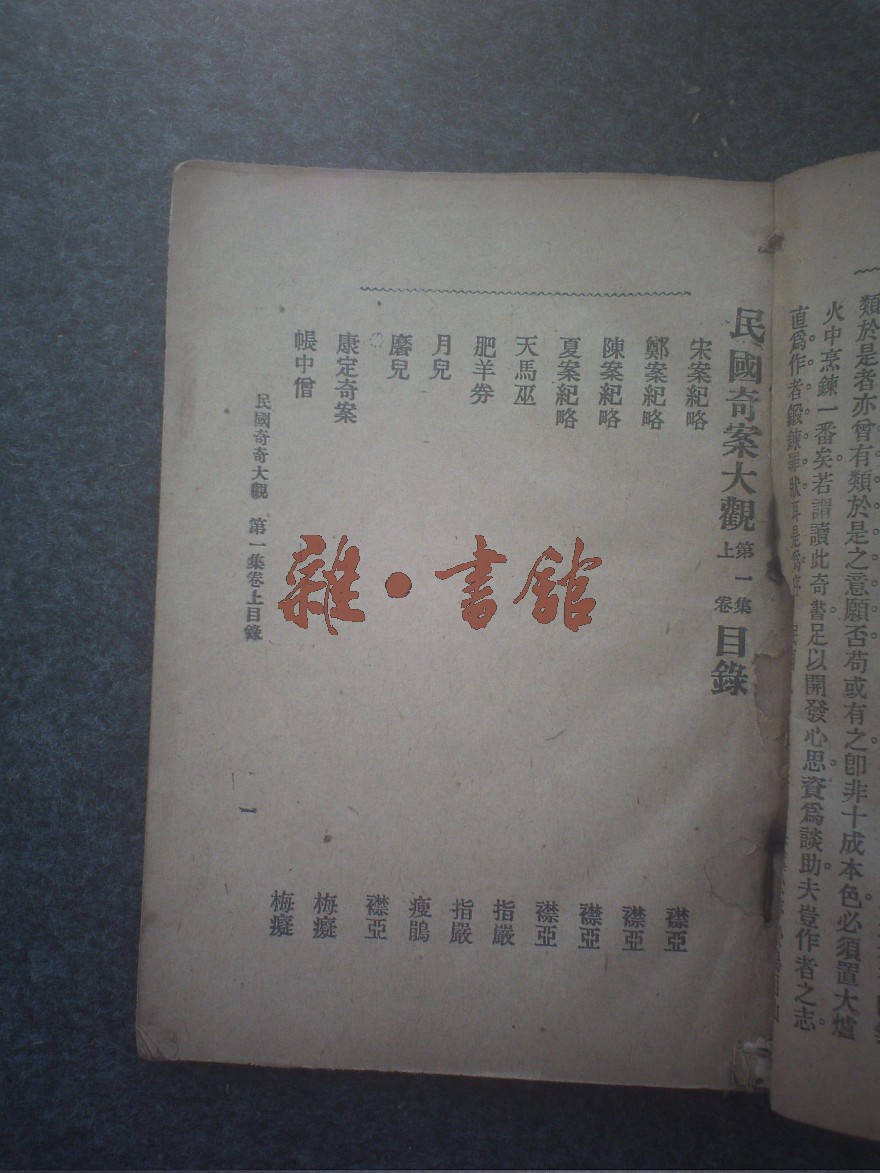 類於是者亦曾有類於是之意願否苟或有之卽非十成本色必須置大爐
火中烹鍊一番矣。若謂讀此奇書足以開發心思資爲談助夫豈作者之志。
直爲作者鍛鍊罪狀耳是爲
民國奇案大觀 第一集卷上 目錄
宋案紀略 襟亞
鄭案紀略 襟亞
陳案紀略 襟亞
夏案紀略 襟亞
天馬巫 指嚴
肥羊劵 指嚴
月兒 瘦鵑
麐兒 襟亞
康定奇案 梅癡
帳中僧 梅癡
民國奇奇大觀 第一集卷上目錄 一
雜·書館